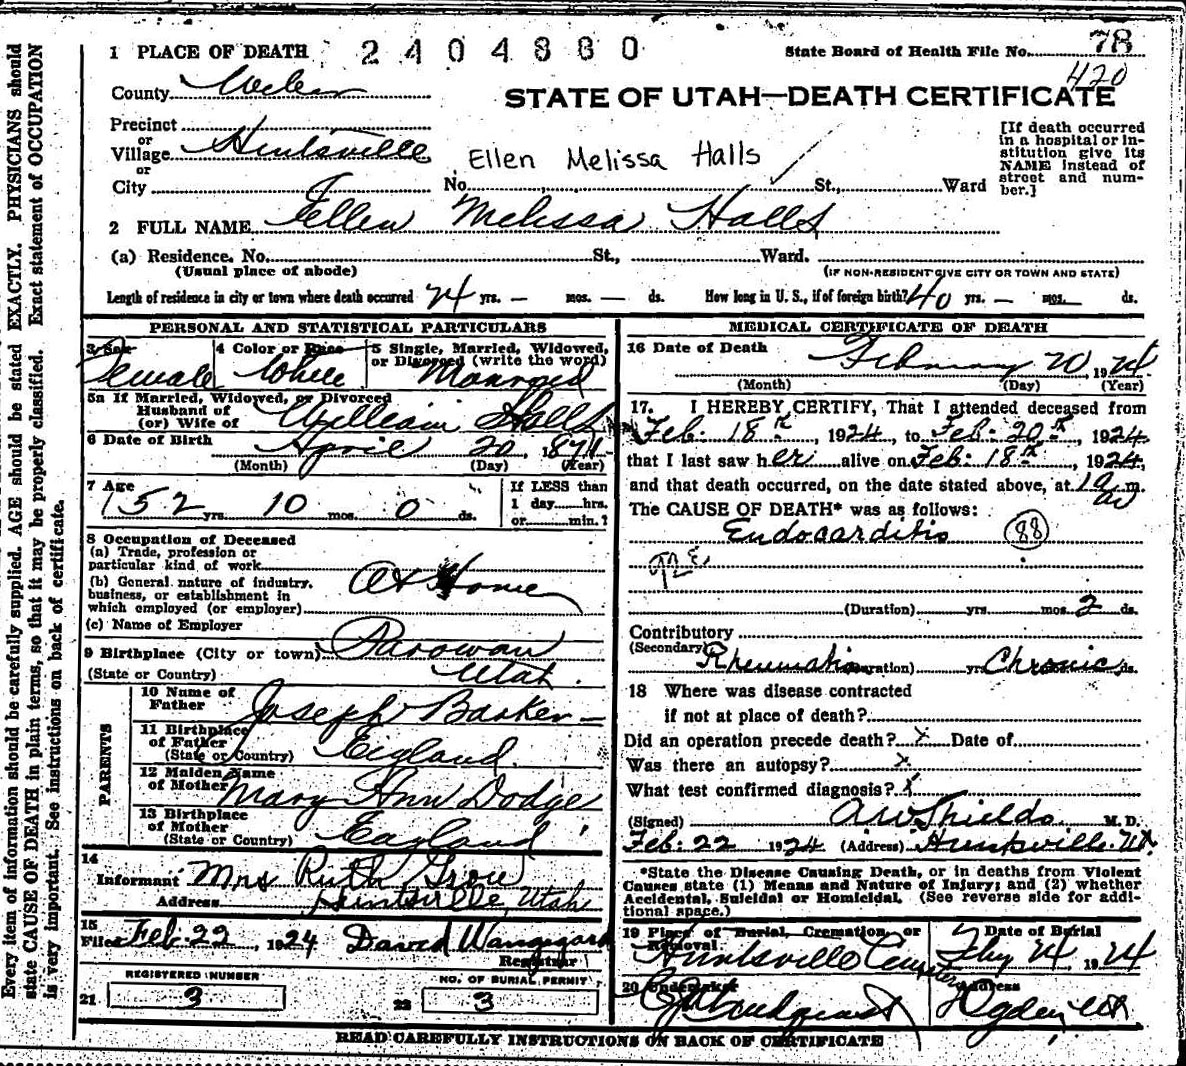 1 PLACE OF DEATH 2404880 State Board of Health File No. 78
420
County Weber
STATE OF UTAH—DEATH CERTIFICATE
Precinct
or
Village Huntsville
or
City
Ellen Melissa Halls
No. St., Ward
[If death occurred
in a hospital or in-
stitution give its
NAME instead of
street and num-
ber.]
2 FULL NAME Ellen Melissa Halls
(a) Residence. No. St., Ward.
(Usual place of abode) (IF NON-RESIDENT GIVE CITY OR TOWN AND STATE)
Length of residence in city or town where death occurred 24 yrs. — mos. — ds. How long in U. S., if of foreign birth? 40 yrs. — mos. ds.
PERSONAL AND STATISTICAL PARTICULARS
3 Sex 4 Color or Race 5 Single, Married, Widowed,
or Divorced (write the word)
Female White Married
5a If Married, Widowed, or Divorced
Husband of
(or) Wife of William Halls
6 Date of Birth April 20, 1871
(Month) (Day) (Year)
7 Age 52 yrs. 10 mos. 0 ds.
If LESS than
1 day hrs.
or min.?
8 Occupation of Deceased
(a) Trade, profession or
particular kind of work
(b) General nature of industry,
business, or establishment in
which employed (or employer)
At Home
(c) Name of Employer
9 Birthplace (City or town) Parowan
(State or Country) Utah.
PARENTS
10 Name of
Father Joseph Barker
11 Birthplace
of Father
(State or Country) England
12 Maiden Name
of Mother Mary Ann Dodge
13 Birthplace
of Mother
(State or Country) England
14
Informant Mrs Ruth
Address Huntsville, Utah
15
Filed Feb. 22, 1924 David Wangsgard
Registrar
REGISTERED NUMBER NO. OF BURIAL PERMIT
21 3 22 3
MEDICAL CERTIFICATE OF DEATH
16 Date of Death February 20, 1924.
(Month) (Day) (Year)
17. I HEREBY CERTIFY, That I attended deceased from
Feb. 18th, 1924, to Feb. 20th, 1924
that I last saw her alive on Feb. 18th, 1924,
and that death occurred, on the date stated above, at m.
The CAUSE OF DEATH* was as follows:
Endocarditis 88
(Duration) yrs. mos. 2 ds.
Contributory
(Secondary) Rheumatism (Duration) yrs. Chronic ds.
18 Where was disease contracted
if not at place of death?
Did an operation precede death? x Date of
Was there an autopsy? x
What test confirmed diagnosis? x
(Signed) A W Shields M. D.
Feb. 22 1924 (Address) Huntsville. Ut.
*State the Disease Causing Death, or in deaths from Violent
Causes state (1) Means and Nature of Injury; and (2) whether
Accidental, Suicidal or Homicidal. (See reverse side for addi-
tional space.)
19 Place of Burial, Cremation, or
Removal
Huntsville Cemetery
Date of Burial
24 1924
20 Undertaker
Address
Ogden, Ut
READ CAREFULLY INSTRUCTIONS ON BACK OF CERTIFICATE
Every item of information should be carefully supplied. AGE should be stated EXACTLY. PHYSICIANS should
state CAUSE OF DEATH in plain terms, so that it may be properly classified. Exact statement of OCCUPATION
is very important. See instructions on back of certificate.